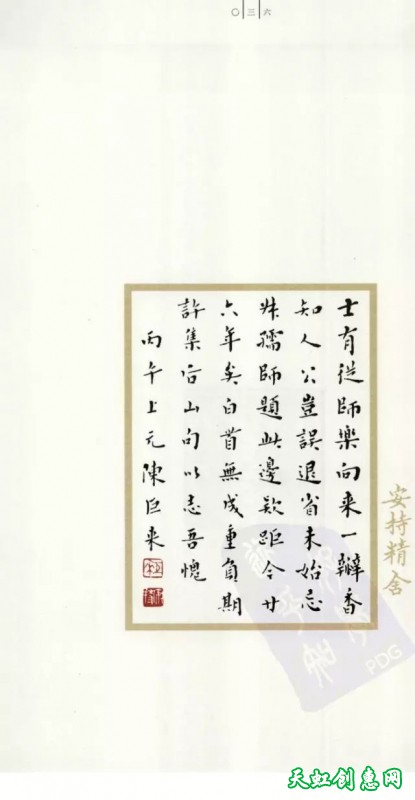 〇三六
士有從師樂向来一瓣香
知人公豈誤退省未始忘
孺師題此邊款距今廿
六年矣白首無成重負期
許集后山句以志吾愧
丙午上元陳巨来
安持精舍
PDG
天虹创惠网